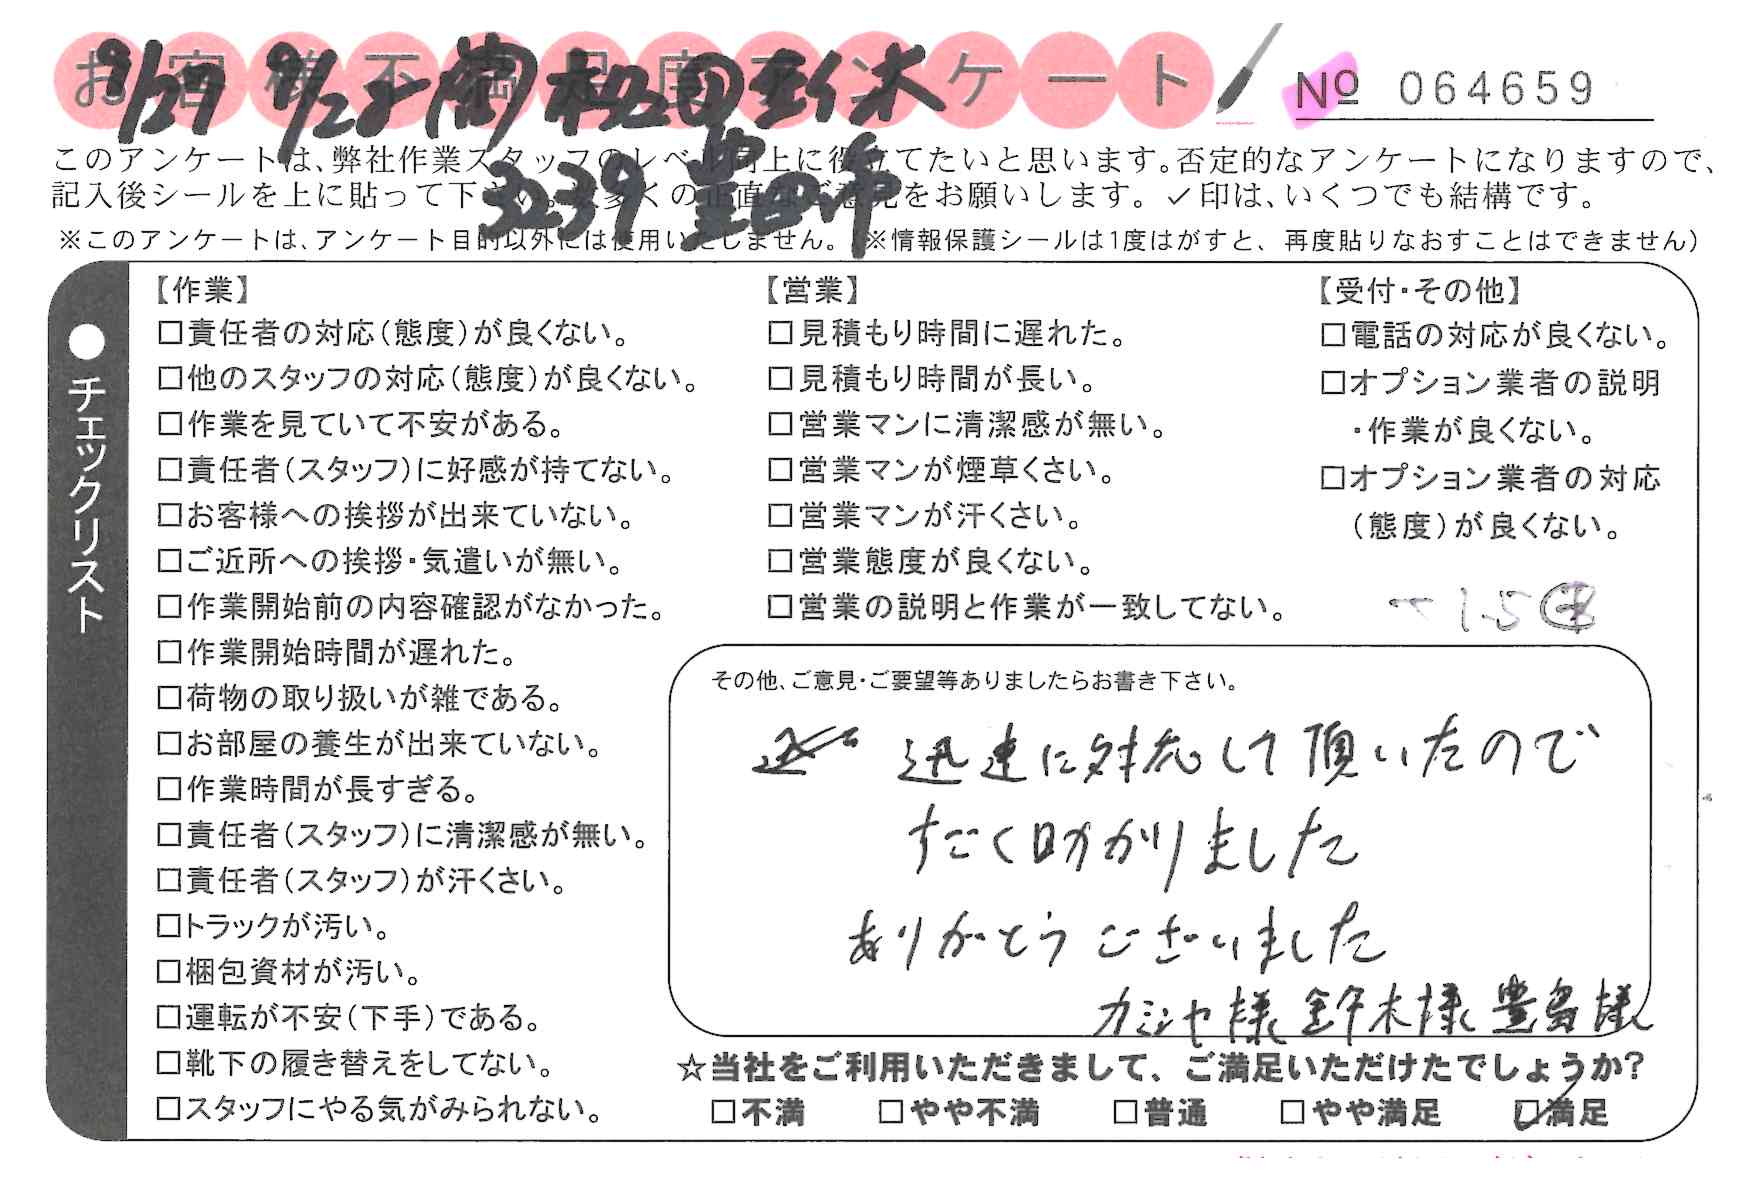 お客様不満足度アンケート
No 064659
9/27 9/28
3239
このアンケートは、弊社作業スタッフのレベル向上に役立てたいと思います。否定的なアンケートになりますので、
記入後シールを上に貼って下さい。数多くの正直なご意見をお願いします。✓印は、いくつでも結構です。
※このアンケートは、アンケート目的以外には使用いたしません。(※情報保護シールは1度はがすと、再度貼りなおすことはできません)
●チェックリスト
【作業】
□責任者の対応(態度)が良くない。
□他のスタッフの対応(態度)が良くない。
□作業を見ていて不安がある。
□責任者(スタッフ)に好感が持てない。
□お客様への挨拶が出来ていない。
□ご近所への挨拶・気遣いが無い。
□作業開始前の内容確認がなかった。
□作業開始時間が遅れた。
□荷物の取り扱いが雑である。
□お部屋の養生が出来ていない。
□作業時間が長すぎる。
□責任者(スタッフ)に清潔感が無い。
□責任者(スタッフ)が汗くさい。
□トラックが汚い。
□梱包資材が汚い。
□運転が不安(下手)である。
□靴下の履き替えをしてない。
□スタッフにやる気がみられない。
【営業】
□見積もり時間に遅れた。
□見積もり時間が長い。
□営業マンに清潔感が無い。
□営業マンが煙草くさい。
□営業マンが汗くさい。
□営業態度が良くない。
□営業の説明と作業が一致してない。
【受付・その他】
□電話の対応が良くない。
□オプション業者の説明
・作業が良くない。
□オプション業者の対応
(態度)が良くない。
1.5
その他、ご意見・ご要望等ありましたらお書き下さい。
迅速に対応して頂いたので
すごく助かりました
ありがとうございました
カミシャ様 鈴木様 豊島様
☆当社をご利用いただきまして、ご満足いただけたでしょうか?
□不満 □やや不満 □普通 □やや満足 ☑満足